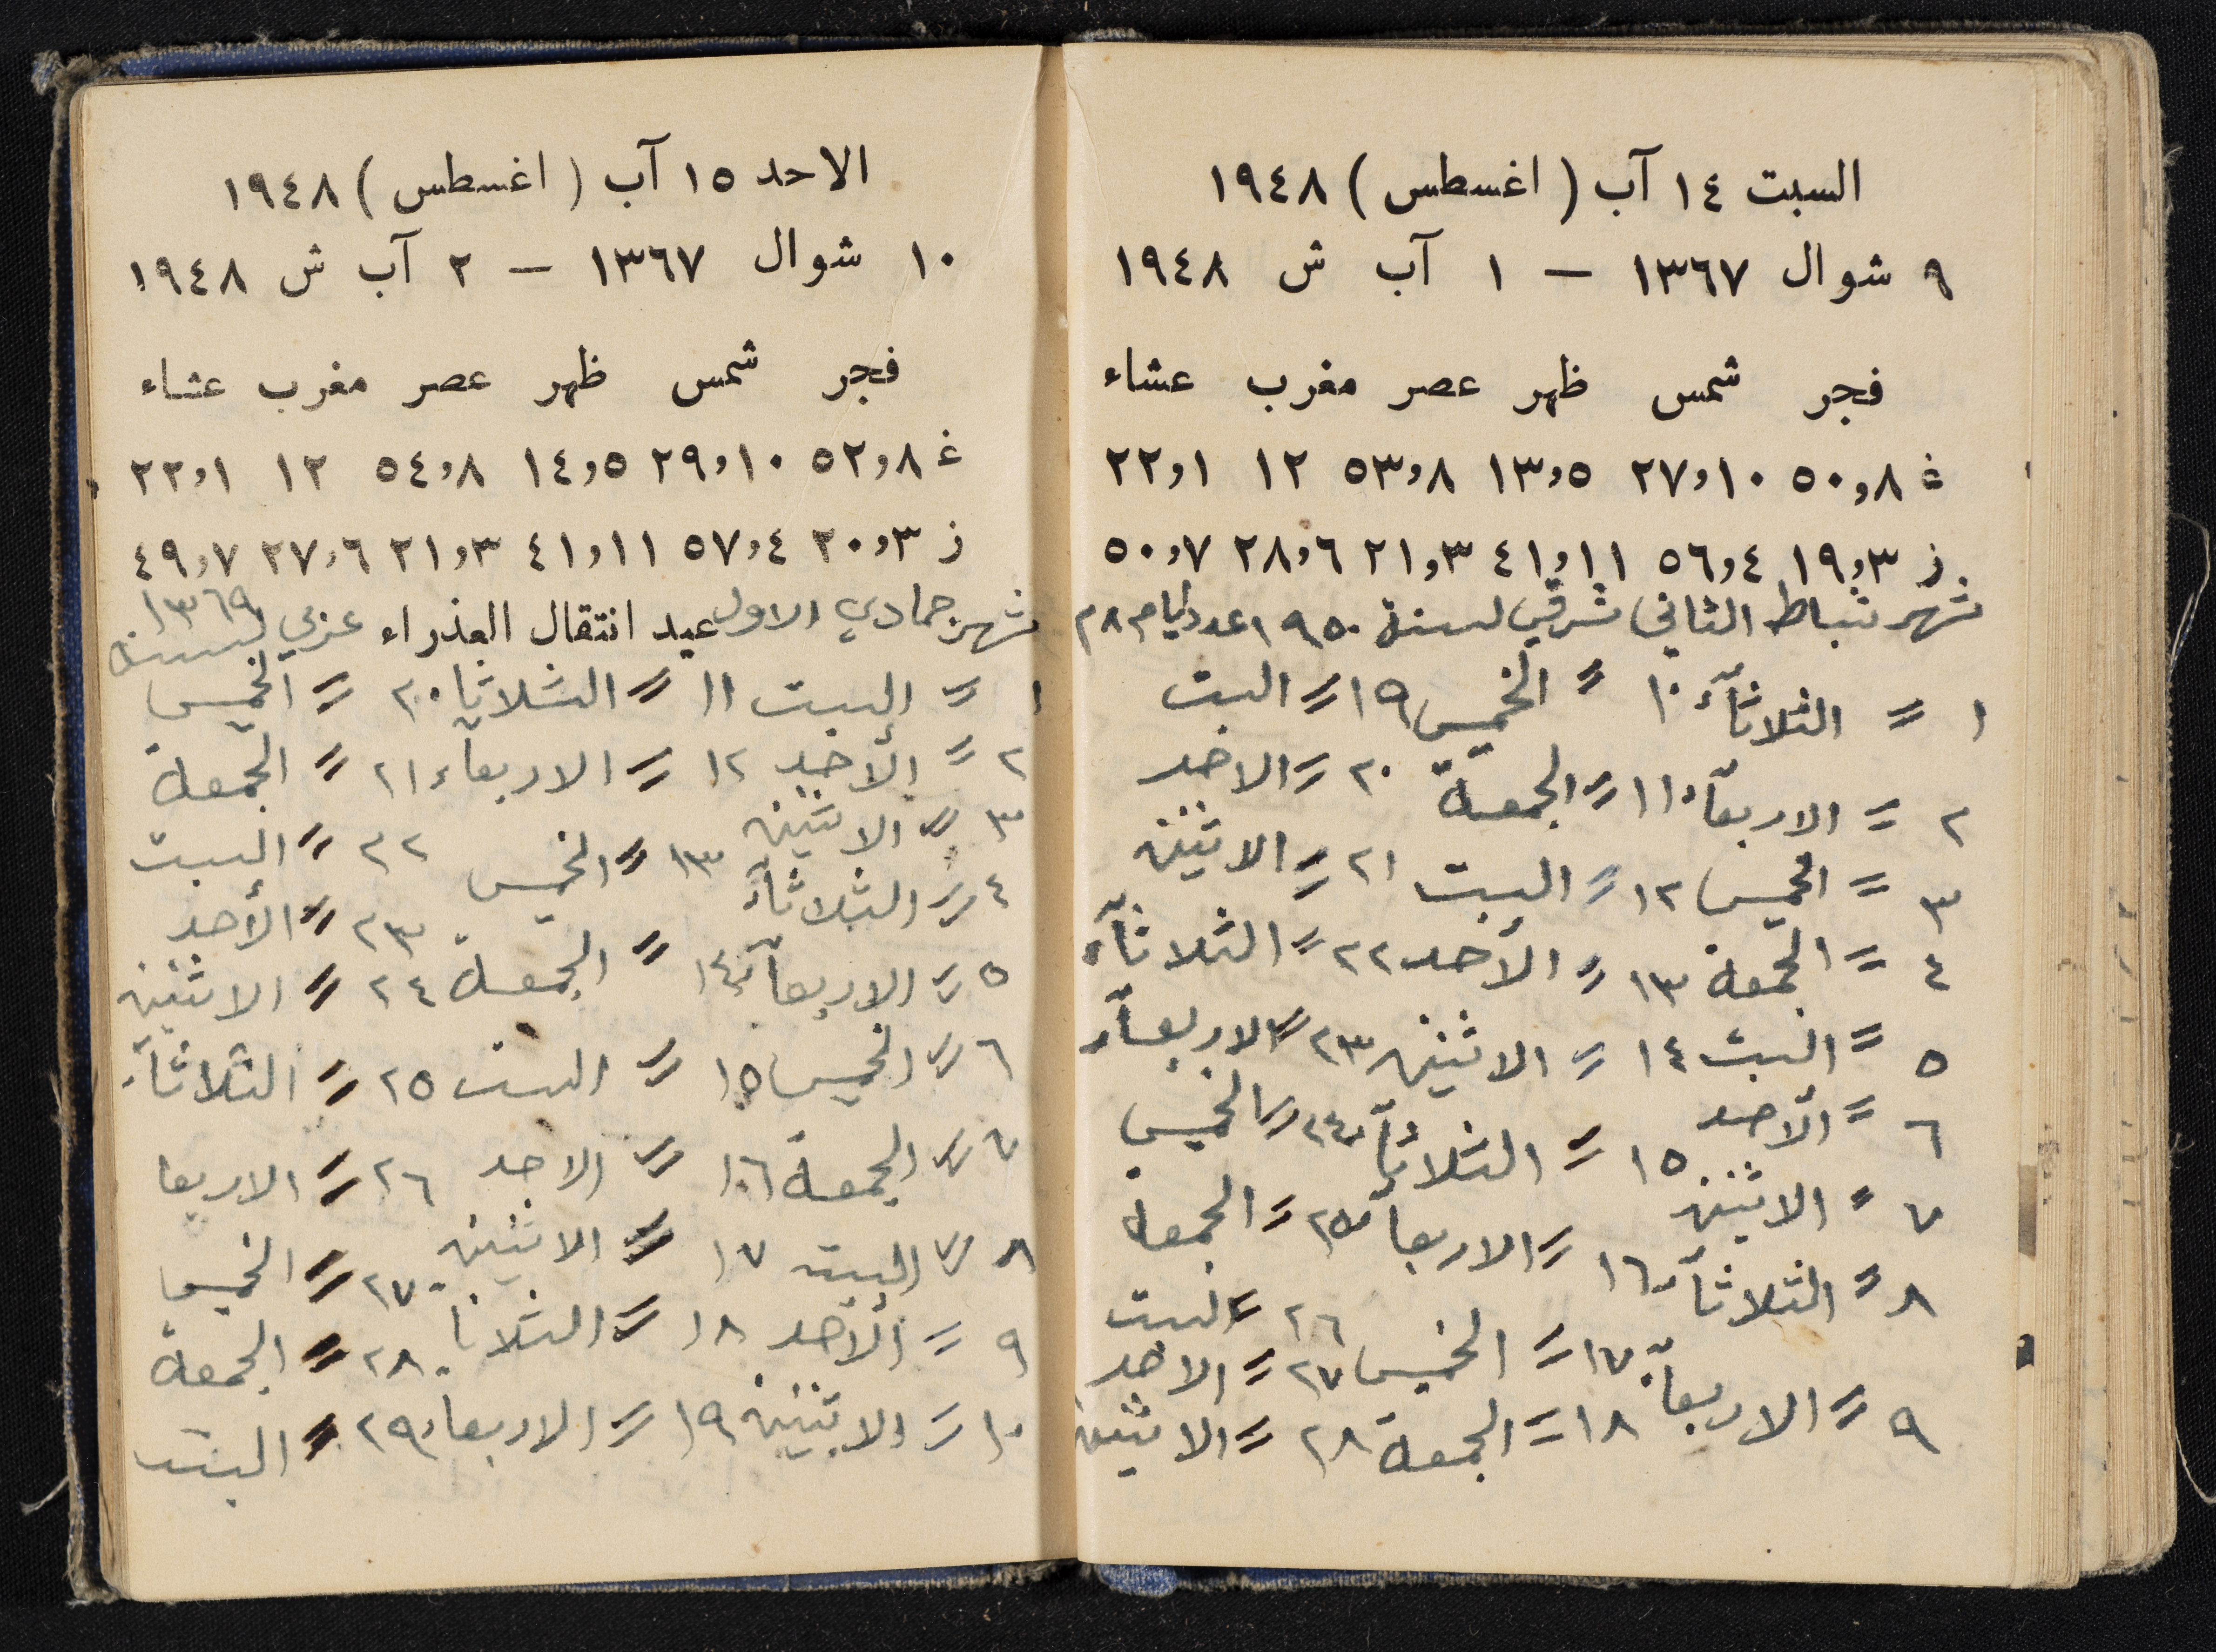 السبت ١٤ آب ( اغسطس ) ١٩٤٨
٩ شوال ١٣٦٧ — ١ آب ش ١٩٤٨
فجر شمس ظهر عصر مغرب عشاء
غ ٥٠،٨ ٢٧،١٠ ١٣،٥ ٥٣،٨ ١٢ ٢٢،١
ز ١٩،٣ ٥٦،٤ ٤١،١١ ٢١،٣ ٢٨،٦ ٥٠،٧
شهر شباط الثاني شرقي لسنة ١٩٥٠ عدد ايام ٢٨
١ = الثلاثآء ١٠ = الخميس ١٩ = السبت
٢ = الاربعآء ١١ = الجمعة ٢٠ = الاحد
٣ = الخميس ١٢ = السبت ٢١ = الاثنين
٤ = الجمعة ١٣ = الأحد ٢٢ = الثلاثآء
٥ = السبت ١٤ = الاثنين ٢٣ = الاربعآء
٦ = الأحد ١٥ = الثلاثآء ٢٤ = الخميس
٧ = الاثنين ١٦ = الاربعآء ٢٥ = الجمعة
٨ = الثلاثآء ١٧ = الخميس ٢٦ = السبت
٩ = الاربعآء ١٨ = الجمعة ٢٧ = الاحد
٢٨ = الاثنين
الاحد ١٥ آب ( اغسطس ) ١٩٤٨
١٠ شوال ١٣٦٧ — ٢ آب ش ١٩٤٨
فجر شمس ظهر عصر مغرب عشاء
غ ٥٢،٨ ٢٩،١٠ ١٤،٥ ٥٤،٨ ١٢ ٢٢،١
ز ٢٠،٣ ٥٧،٤ ٤١،١١ ٢١،٣ ٢٧،٦ ٤٩،٧
شهر جمادي الاول عيد انتقال العذراء عربي لسنة ١٣٦٩
١ = السبت ١١ = الثلاثا ٢٠ = الخميس
٢ = الأحد ١٢ = الاربعاء ٢١ = الجمعة
٣ = الاثنين ١٣ = الخميس ٢٢ = السبت
٤ = الثلاثآء ١٤ = الجمعة ٢٣ = الأحد
٥ = الاربعآء ١٥ = السبت ٢٤ = الاثنين
٦ = الخميس ١٦ = الاحد ٢٥ = الثلاثآء
٧ = الجمعة ١٧ = الاثنين ٢٦ = الاربعا
٨ = السبت ١٨ = الثلاثا ٢٧ = الخميس
٩ = الأحد ١٩ = الاربعاء ٢٨ = الجمعة
١٠ = الاثنين ٢٩ = السبت